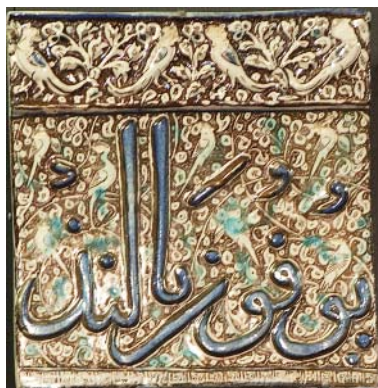 يُوفُونَ بالنذ